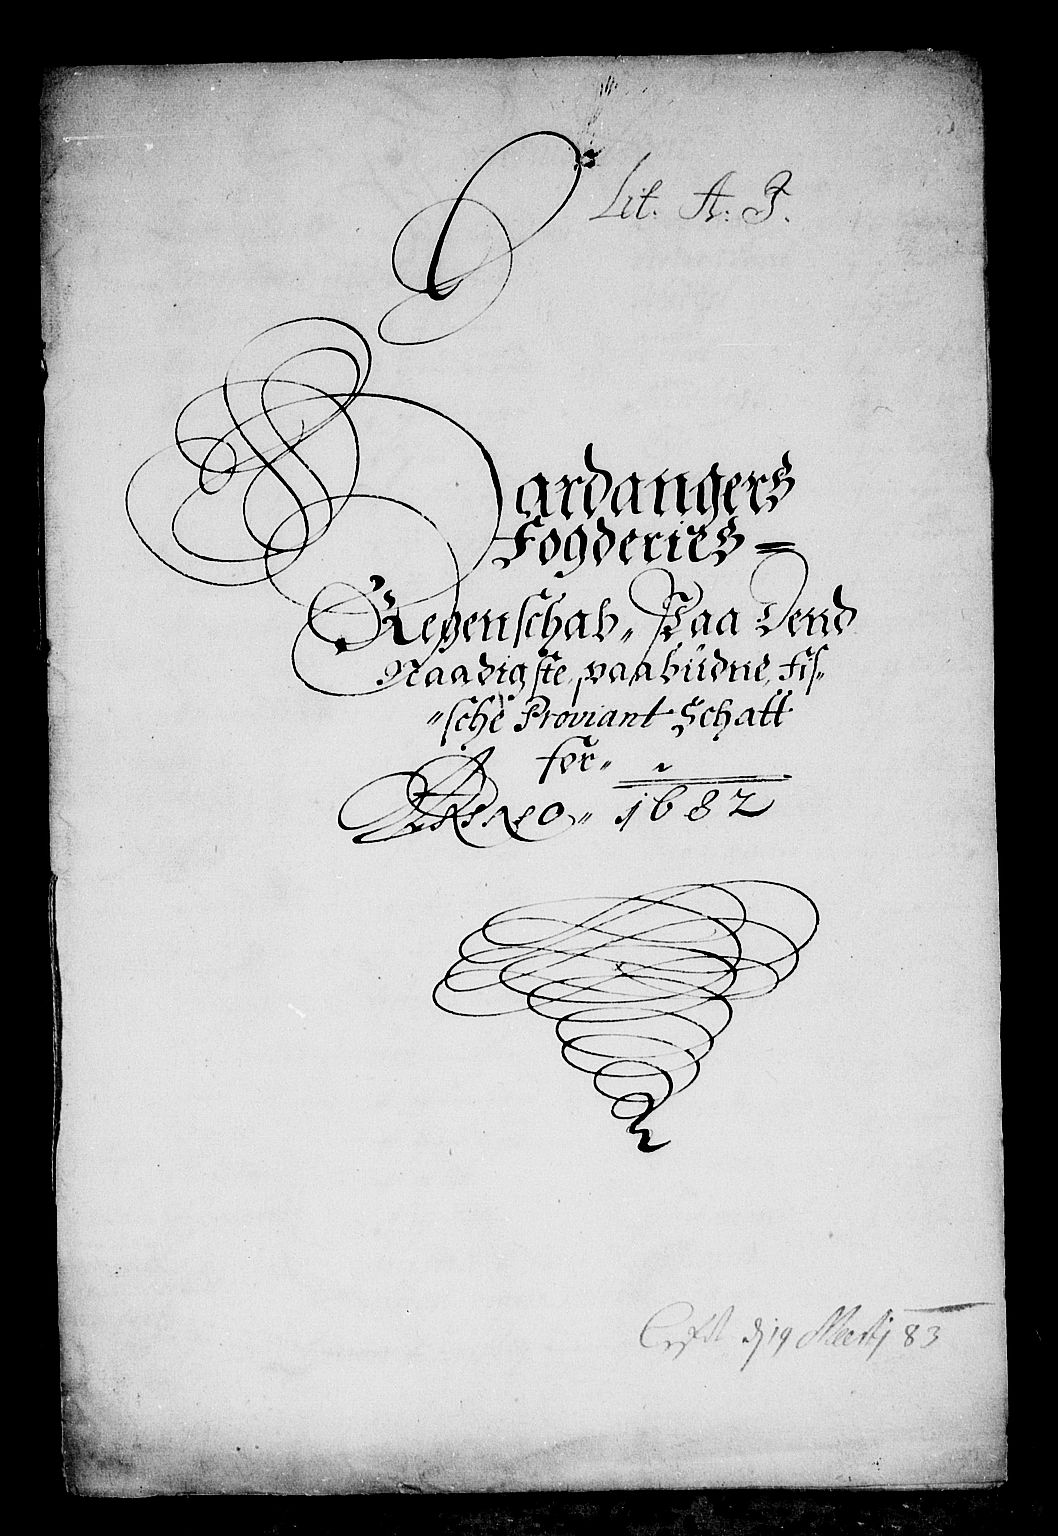 Lit. A. J.
Hardangers
Fogderies =
Regenschab„ Paa Dend
Naadigste, paabüdne, Fis„
„sche Proviant Schatt
for„
Anno„ 1682
19 Martij 83